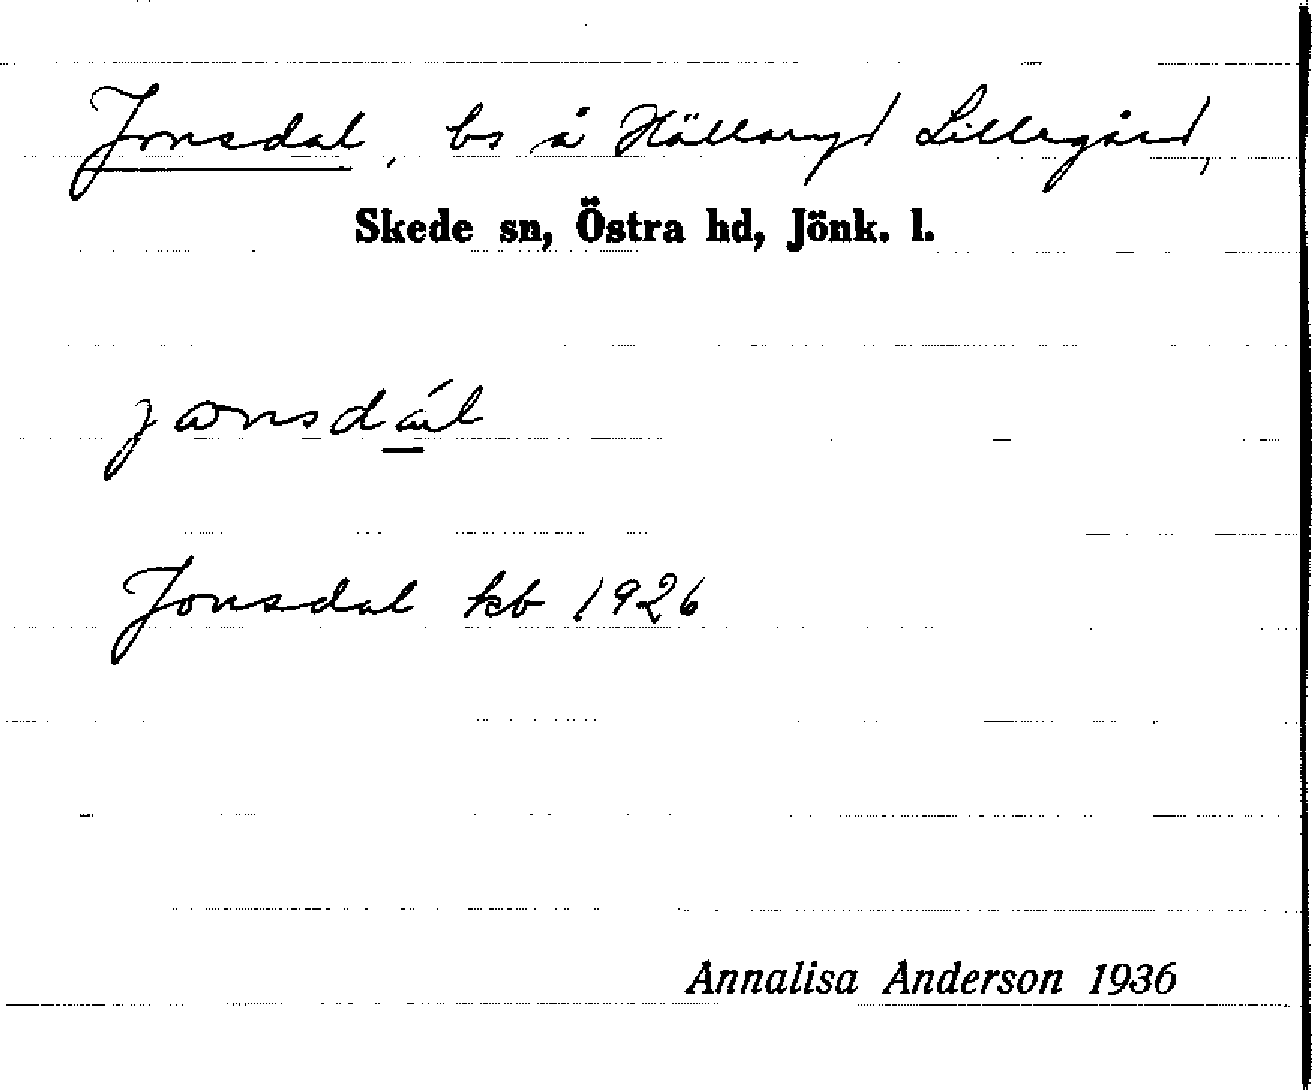 Jonsdal, bs å Hällaryd Lillegård,
Skede sn, Östra hd, Jönk. l.
Jonsdal kb 1926
Annalisa Anderson 1936